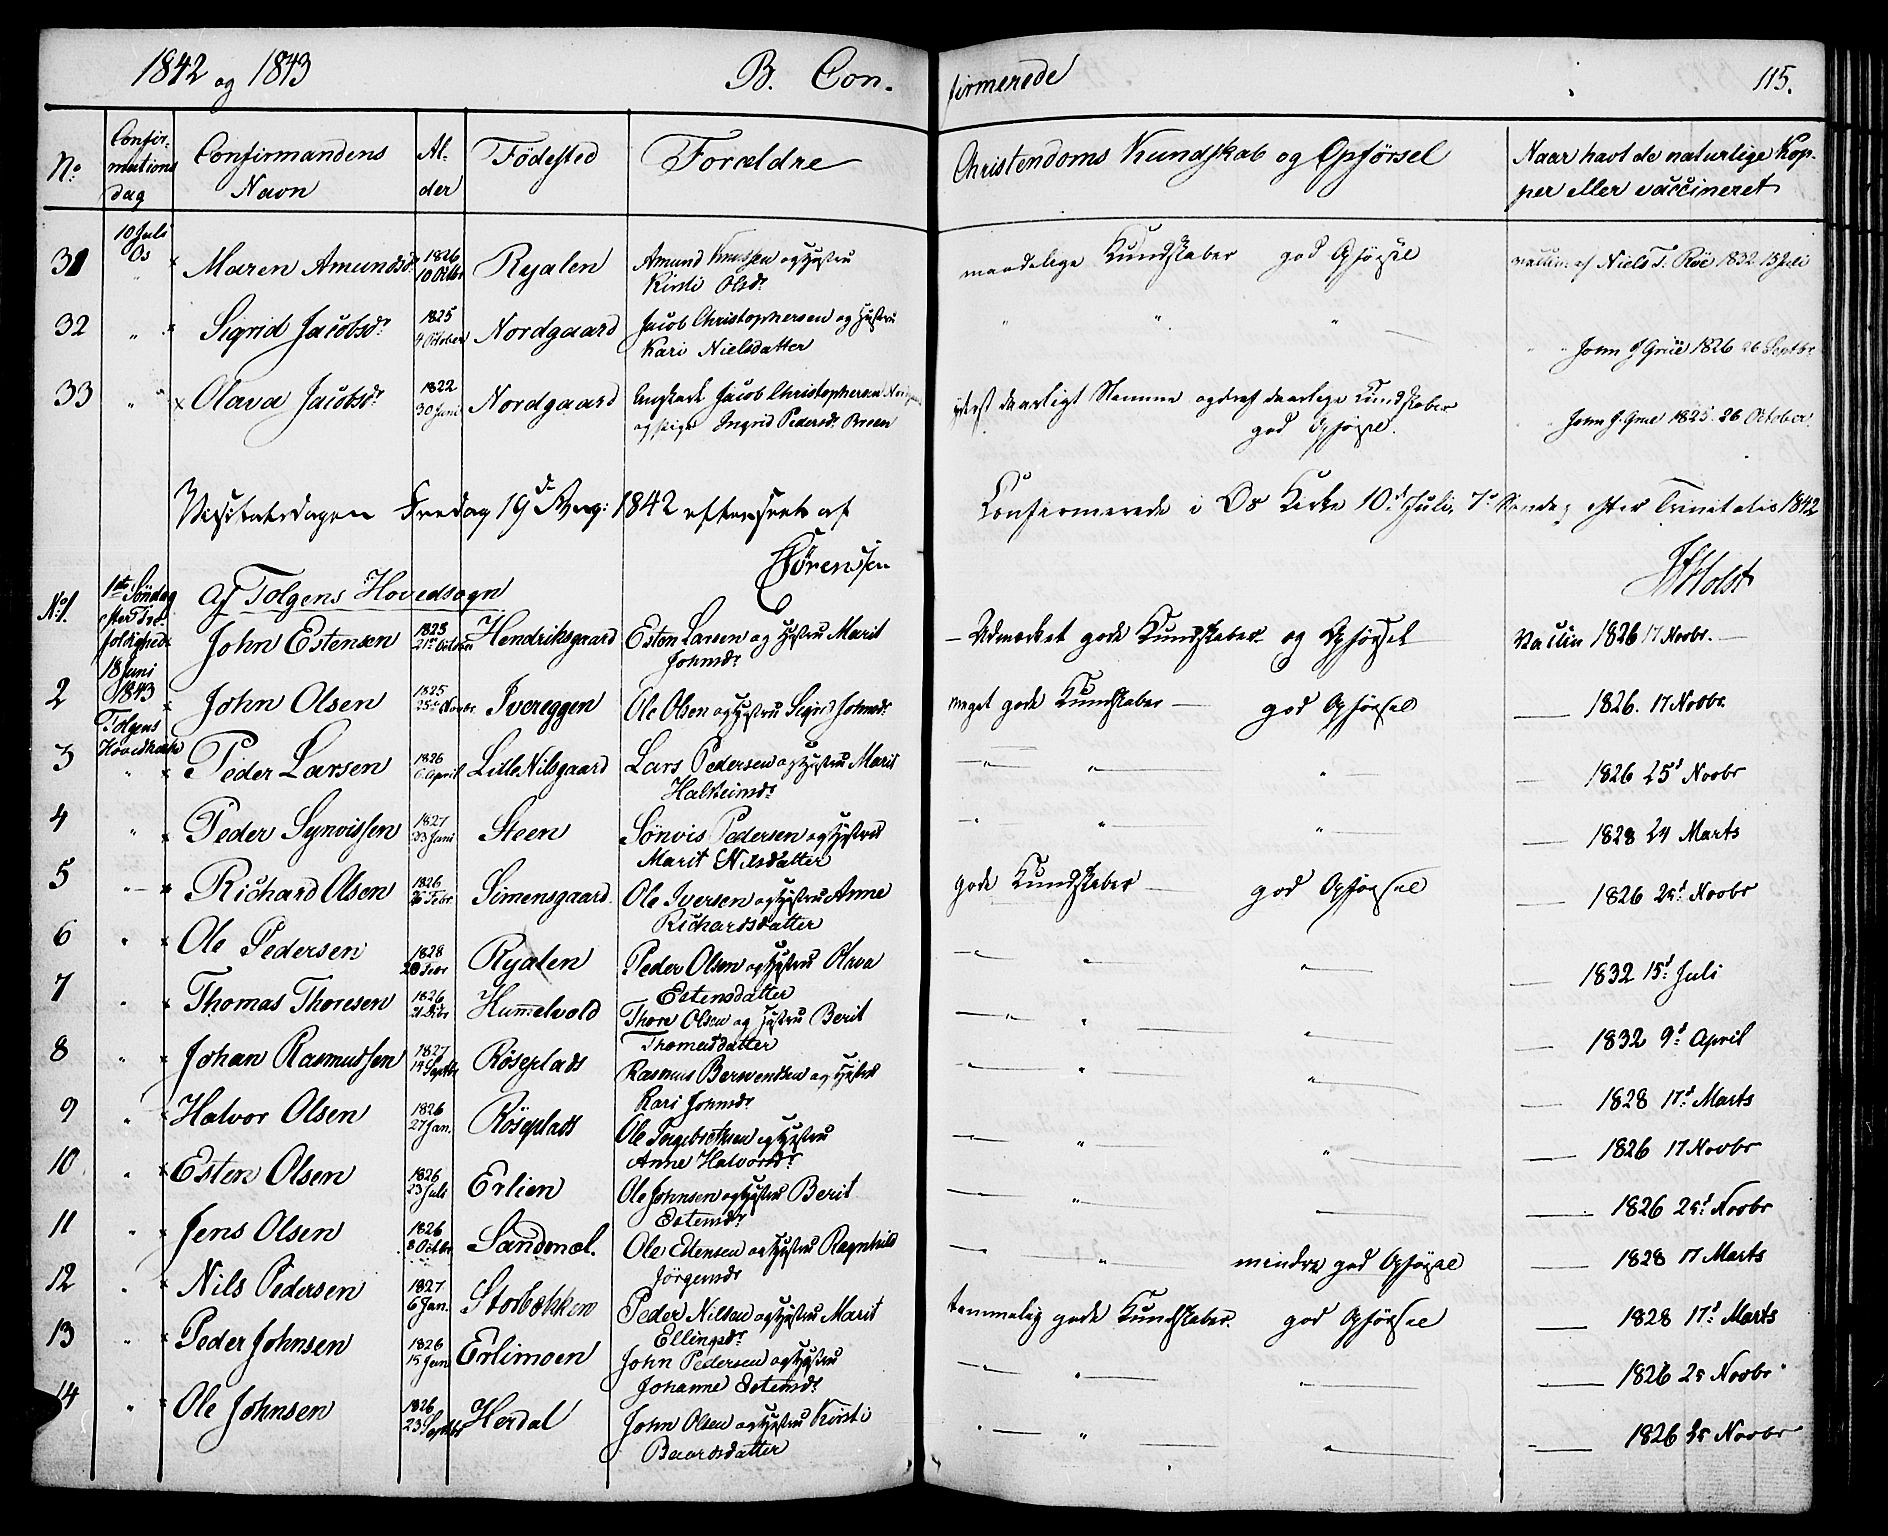 1842 og 1843 B. Con- firmerede 115.
No Confirmations dag Confirmandens Navn Alder Fødested Forældre Christendoms Kundskab og Opførsel Naar havt de naturlige Kopper eller vaccineret
31 10 Juli Os Maren Amundsdr 1826 10 Octbr Ryalen Amund Knudsen og Hustru Kirsti Olsdr maadelige Kundskaber god Opførsel vaccin. af Niels T. Røe 1832 15 Juli
32 " Sigrid Jacobsdr 1825 9 October Nordgaard Jacob Christophersen og Hustru Kari Nielsdatter " " " " " John J Grue 1826 26 Septbr
33 " " Olava Jacobsdr 1822 30 Juni Nordgaard Ungkarl Jacob Christophersen og pige Ingrid Pedersdr Breen yderst daarligt Nemme og daarlige Kundskaber god Opførsel. John J. Grue 1825. 26 October.
Visitatsdagen Fredag 19d Aug: 1842 efterseet af Sørenssen
Confirmerede i Os Kirke 10d Juli, 7d Søndag efter Trinitatis 1842
Holst
Af Tolgens Hovedsogn
No 1. 1ste Søndag efter Trefoldighed 18 Juni 1843 Tolgens Hovedkirke John Estensen 1825 21de October Hendriksgaard Esten Larsen og Hustru Marit Johnsdr – Udmærket gode Kundskaber og Opførsel Vaccin 1826 17 Novbr. —
2 John Olsen 1825 25de Novbr. Ivereggen Ole Olsen og Hustru Sigrid Johnsdr meget gode Kundskaber — god Opførsel — 1826. 17 Novbr.
3 " Peder Larsen 1826 6 April Lille Nilsgaard Lars Pedersen og Hustru Marit Halsteinsdr —"— " — " — — 1826 25d Novbr
4 " Peder Synvissen 1827 23 Juni Steen Sønvis Pedersen og Hustru Marit Nilsdatter —"— " — " — — 1828 24 Marts
5 —"— Richard Olsen 1826 26 Febr Simensgaard Ole Iversen og Hustru Anne Richardsdatter gode Kundskaber — god Opførsel — 1826 25d Novbr
6 " Ole Pedersen 1828 20 Febr Ryalen Peder Olsen og Hustru Olava Estensdatter —"— " — " — — 1832 15d Juli
7 " Thomas Thoresen 1826 Hummelvold Thore Olsen og Hustru Berit Thomasdatter —"— " — " — — 1832 9d April
8 " Johan Rasmussen 1827 14 Septbr Røseplads Rasmus Berwendsen og Hustru Kari Johnsdr —"— " — " — — 1828 17d Marts
9 " Halvor Olsen 1826 27 Jan. Røseplads Ole Ingebrethsen og Hustru Anne Halvorsdr —"— " — " — — 1826 17 Novbr
10 " Esten Olsen 1826 23 Juli Erlien Ole Johnsen og Hustru Berit Estensdr —"— " — — — 1826 25d Novbr
11 " Jens Olsen 1826 8 Octbr Sandmæl. Ole Estensen og Hustru Ragnhild Jørgensdr —"— " mindre god Opførsel — 1828 17 Marts
12 " Nils Pedersen 1827 6 Jan. Storbekken Peder Nilsen og Hustru Marit Ellingsdr temmelig gode Kundskaber. god Opførsel — 1828 17d Marts
13 " Peder Johnsen 1826 15 Juni Erlimoen John Pedersen og Hustru Johanne Estensdr —"— " — " — — 1826 25 Novbr
14 " Ole Johnsen 1826 23 Septbr Herdal John Olsen og Hustru Kirsti Baardsdatter "— " — " — — 1826 25 Novbr